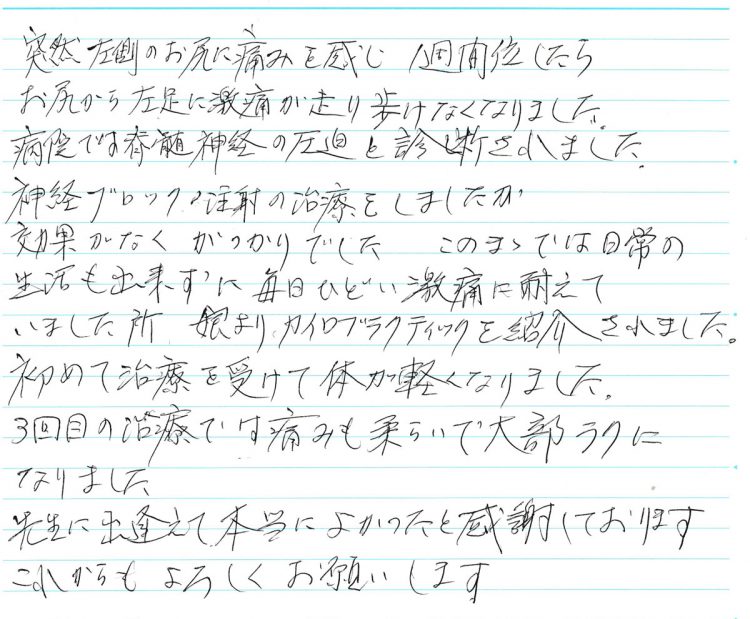 突然左側のお尻に痛みを感じ 1週間位したら
お尻から左足に激痛が走り歩けなくなりました。
病院では脊髄神経の圧迫と診断されました。
神経ブロック注射の治療をしましたが
効果がなく がっかりでした このまゝでは日常の
生活も出来ずに毎日ひどい激痛に耐えて
いました所 娘よりカイロプラクティックを紹介されました。
初めて治療を受けて体が軽くなりました。
3回目の治療では痛みも柔らいで大部ラクに
なりました
先生に出逢えて本当によかったと感謝しております
これからもよろしくお願いします